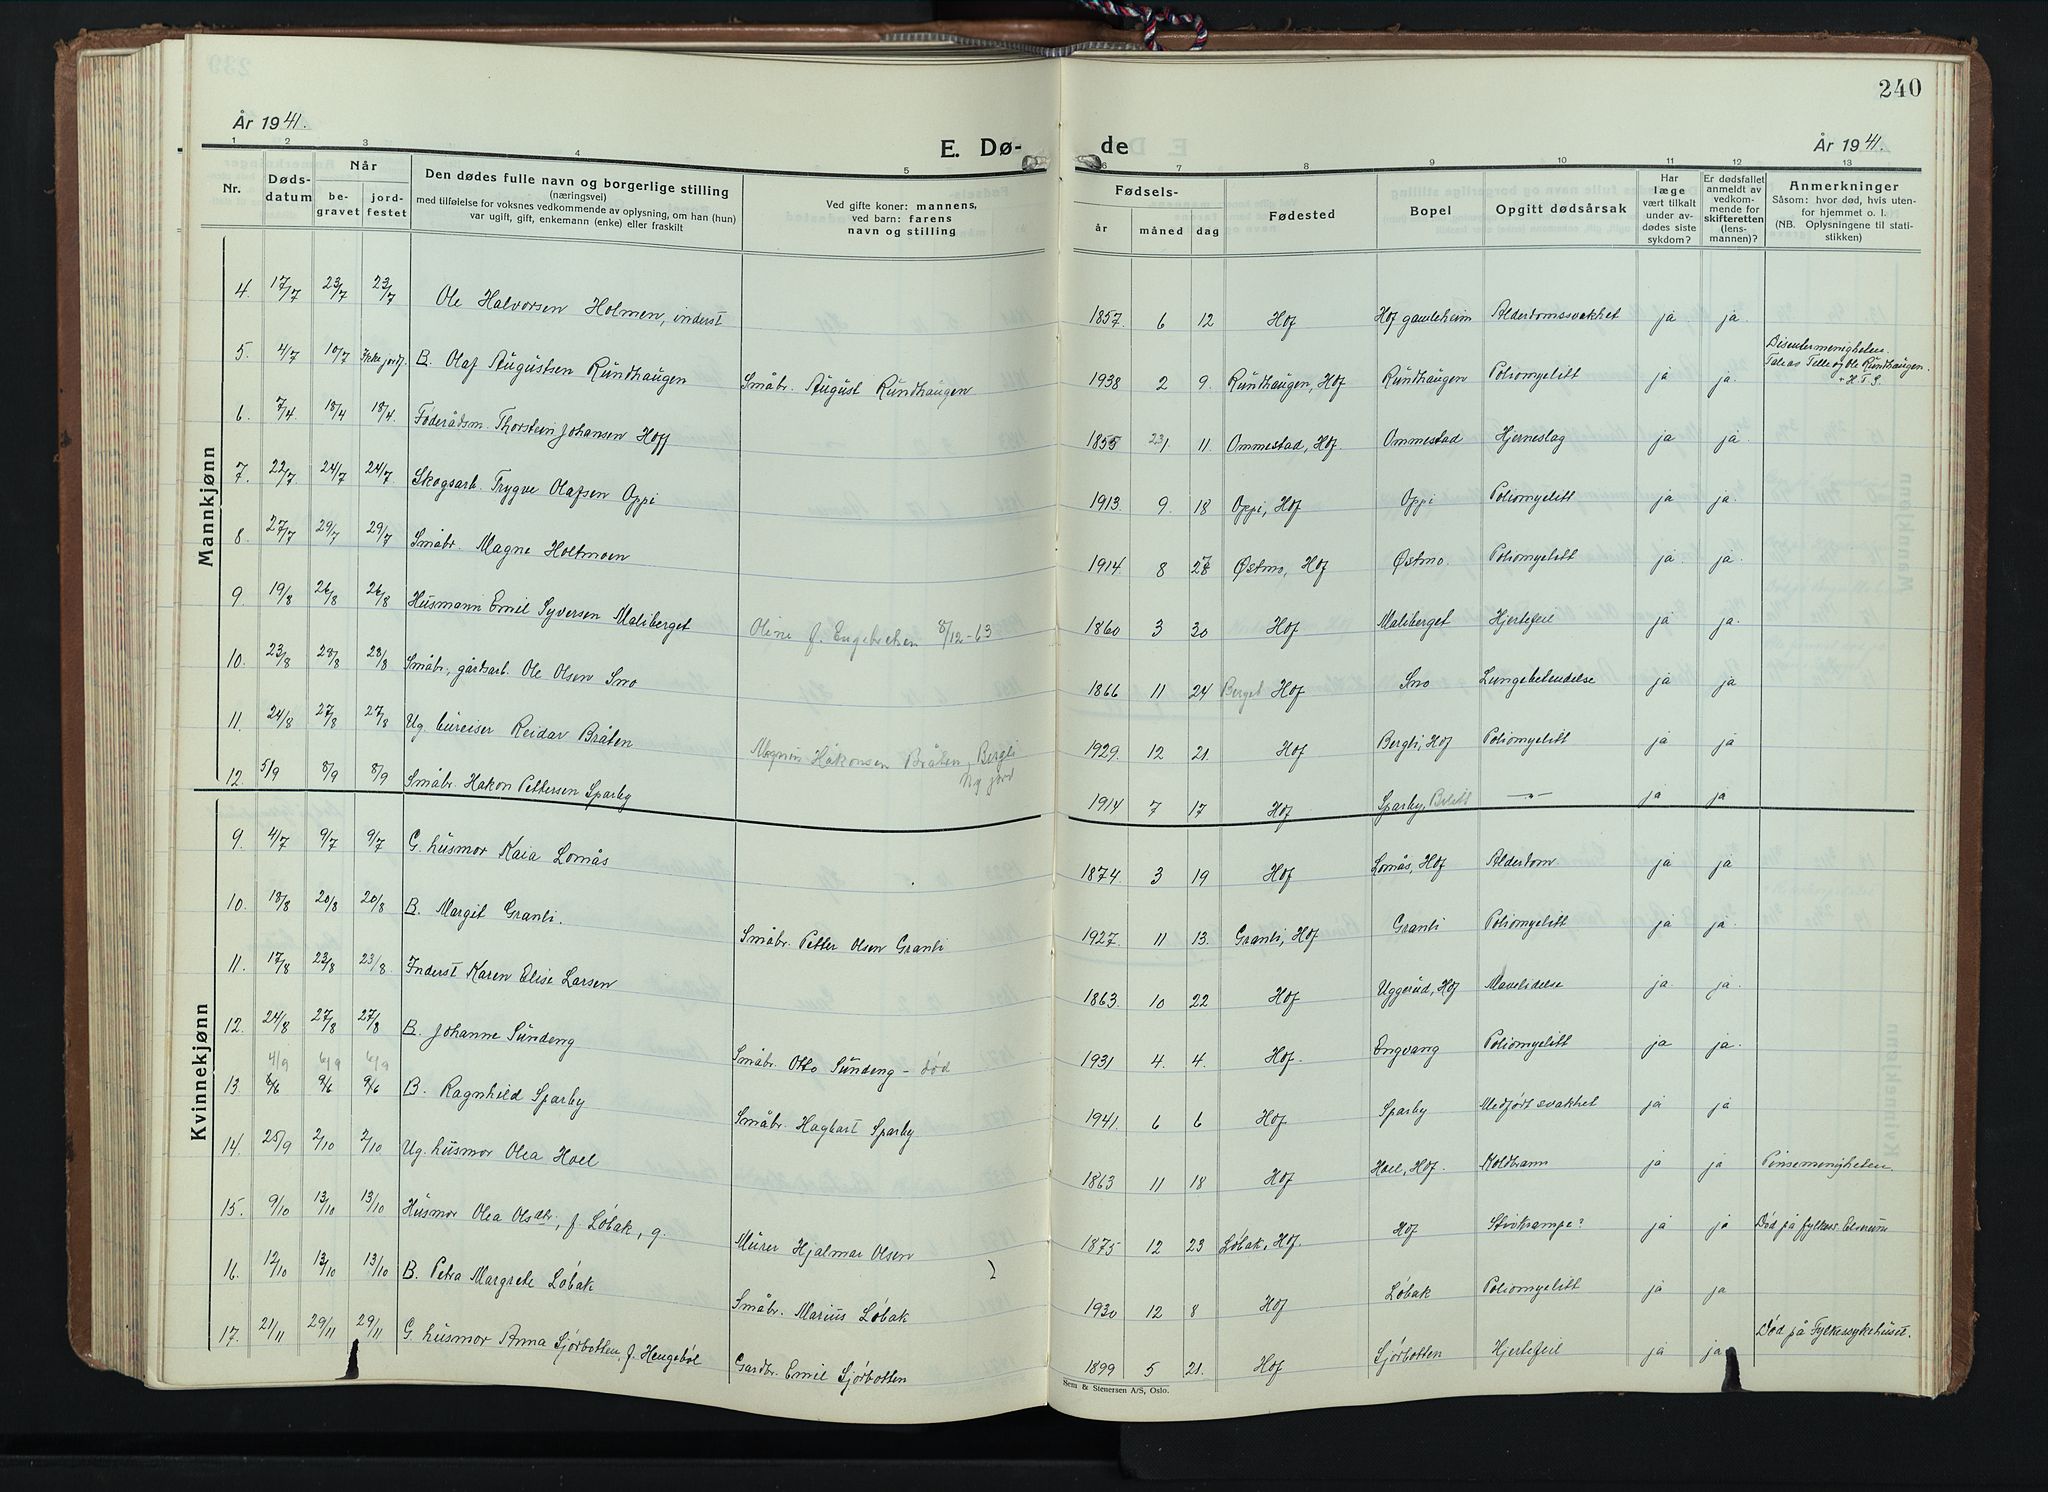 240
År 1941.
E. Dø-
de
År 1941.
1 2 3 4 5 6 7 8 9 10 11 12 13
Nr.
Døds-
datum
Når
be-
gravet
jord-
festet
Den dødes fulle navn og borgerlige stilling
(næringsvei)
med tilføielse for voksnes vedkommende av oplysning, om han (hun)
var ugift, gift, enkemann (enke) eller fraskilt
Ved gifte koner: mannens,
ved barn: farens
navn og stilling
Fødsels-
år
måned
dag
Fødested
Bopel
Opgitt dødsårsak
Har
læge
vært tilkalt
under av-
dødes siste
sykdom?
Er dødsfallet
anmeldt av
vedkom-
mende for
skifteretten
(lens-
mannen)?
Anmerkninger
Såsom: hvor død, hvis uten-
for hjemmet o. l.
(NB. Oplysningene til stati-
stikken)
Mannkjønn
4. 17/7 23/7 23/7 Ole Halvorsen Holmen, inderst 1857. 6 12 Hof Hof gamleheim Alderdomssvakhet ja ja.
5. 4/7 10/7 Ikke jordf. B. Olaf Augustsen Rundhaugen Småbr. August Rundhaugen 1938 2 9. Rundhaugen, Hof Rundhaugen Poliomyelitt ja ja. Disentermenigheten.
Taleas Telle og Ole Rundhaugen.
+ H. T. S.
6. 7/4 18/4 18/4. Føderådsm. Thorstein Johansen Hoff 1855 11. Ommestad, Hof. Ommestad Hjerneslag ja ja.
7. 22/7. 24/7 24/7 Skogsarb. Trygve Olafsen Oppi 1913. 9. 18 Oppi, Hof Oppi Poliomyelitt ja ja.
8. 27/7 29/7 29/7 Småbr. Magne Holtmoen 1914. 8 Østmo, Hof Østmo. Poliomyelitt ja. ja.
9. 19/8 26/8 26/8 Husmann Emil Syversen Maliberget Oline f. Engebretsen 8/12-63 1860 3 30 Hof Maliberget Hjertefeil ja ja.
10. 23/8 28/8 28/8 Småbr., gårdsarb. Ole Olsen Sno 1866 11 24 Berget Hof Sno Lungebetendelse ja ja
11. 24/8 27/8 27/8 Ug. Reidar Bråten Magnus Håkonsen Bråten, Bergli
Ny jord 1929. 12 21. Hof Bergli, Hof Poliomyelitt ja ja
12. 5/9 8/9 8/9 Småbr. Håkon Pettersen Sparby 1914 7 17 Hof Sparby, — " — ja ja
Kvinnekjønn
9. 4/7 9/7 9/7 G. husmor Kaia Lomås 1874. 3 19 Hof Lomås, Hof Alderdom. ja ja
10. 18/8 20/8 20/8 B. Margit Granli. Småbr. Petter Olsen Granli 1927. 11 13. Granli, Hof Granli Poliomyelitt ja ja.
11. 17/8 23/8 23/8. Inderst Karen Elise Larsen 1863. 10 22 Hof Uggerud, Hof Mavelidelse ja. ja.
12. 24/8 27/8 27/8 B. Johanne Sundeng Småbr. Otto Sundeng - død 1931 4. 4. Hof. Engvang Poliomyelitt ja ja.
4/9 6/9 6/9
13. 6/6 9/6 9/6 B. Ragnhild Sparby Småbr. Hagbart Sparby 1941. 6 6 Hof Sparby Medfødt svakhet ja ja
14. 25/9 2/10 2/10 Ug. husmor Olea Hoel 1863 11 18 Hof Hoel, Hof. Koldbrann ja ja Pinsemenigheten
15. 9/10 13/10 13/10 Husmor Olea Olsdtr., f. Løbak, g. Murer Hjalmar Olsen 1875 12 23 Løbak, Hof. Hof Stivkrampe? ja ja Død på fylkess. Elverum
16. 12/10 13/10 13/10 B. Petra Margrete Løbak Småbr. Marius Løbak 1930 12 8 Hof Løbak Poliomyelitt ja ja
17. 21/11 29/11 29/11 G. husmor Anna Sjørbotten, f. Hengebøl Gardbr. Emil Sjørbotten 1899 5 21. Hof Sjørbotten Hjertefeil ja ja Død på Fylkessykehuset.
Sem & Stenersen A/S, Oslo.